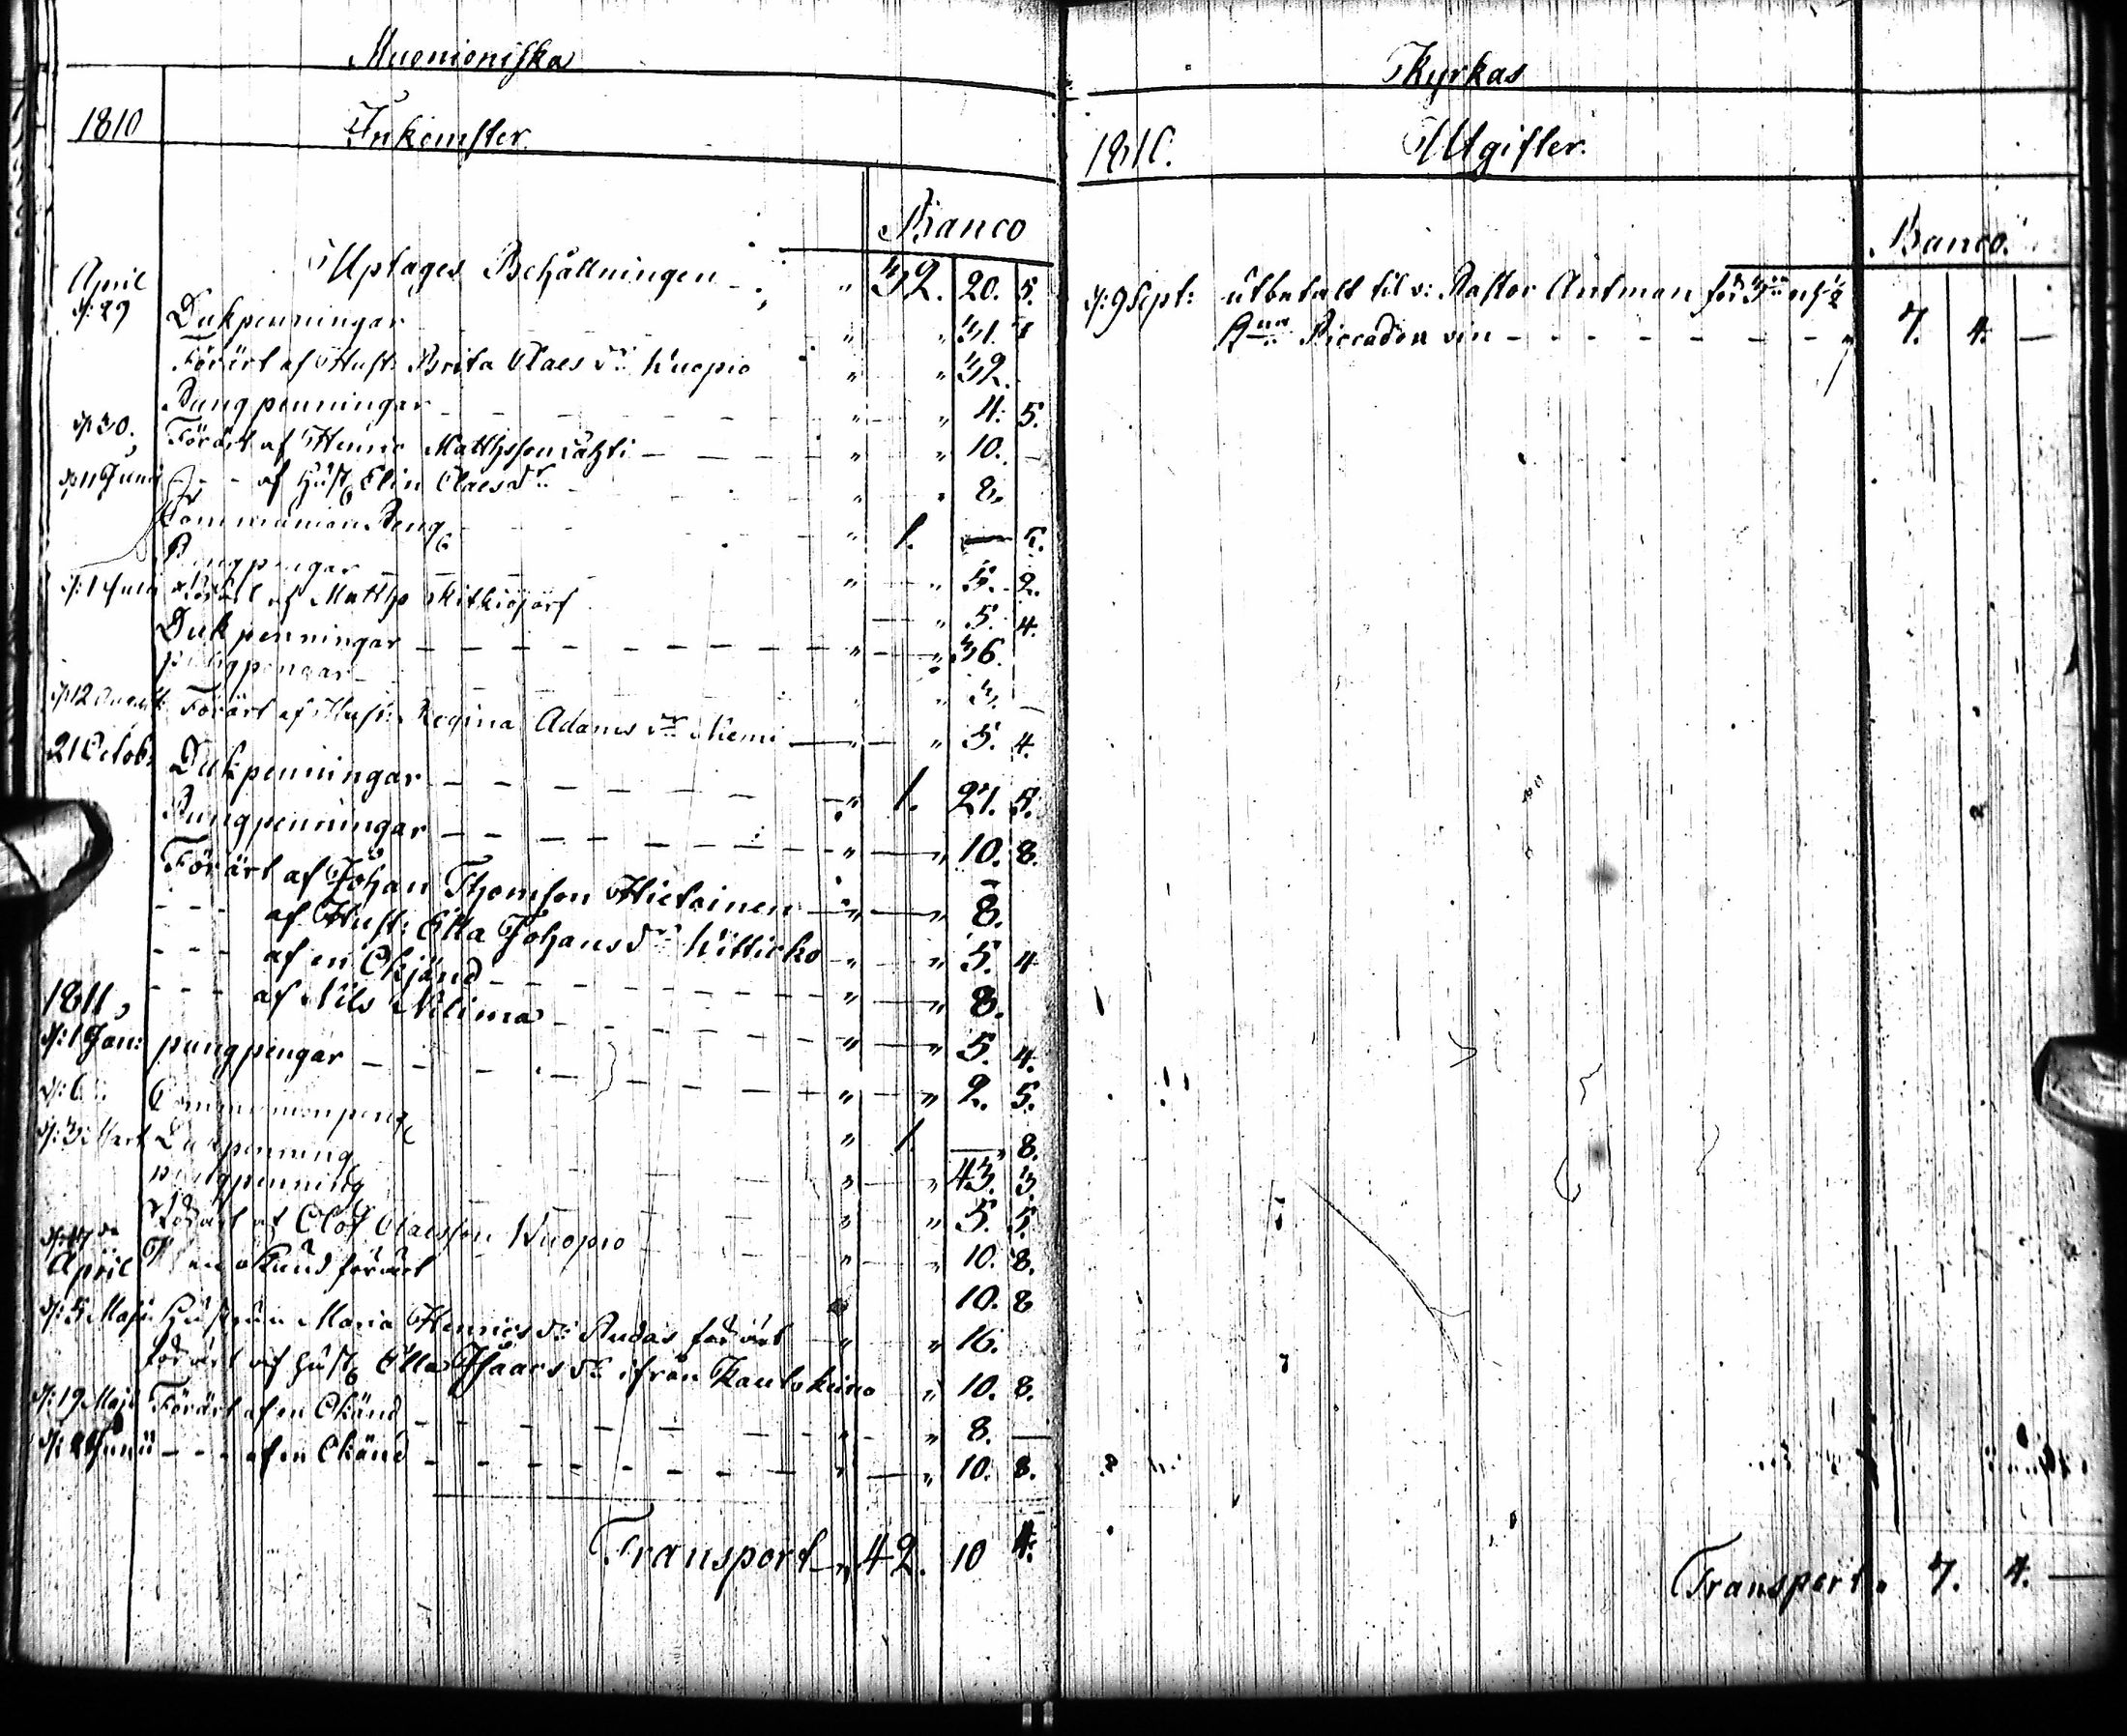 Muonioniska
1810 Inkomster.
Banco
April Uptages Behållningen - " 32. 20. 5.
d: 29 Dukpenningar " " 31. 1
Förärt af Hust: Brita Claes dr Kuopio " " 32.
Pungpenningar - - - - " " 4. 5.
d 30. Förärt af Henric Mattsson Lahti - - - - " " 10. -
d 11 Junii Do - - af Hust Elin Claesdr " " 8.
Communion Peng " 1. — 5.
Pungpengar - - " " 5. 2.
d: 1 Julii Förärt af Matths Mitkiöjärf " 5. 4.
Dukpenningar - - - - - - " " 36.
pungpengar - - " 3. —
d 12 August: Förärt af Hust: Regina Adams dr Niemi — " — " 5. 4.
21 Octob: Dukpenningar - - - - - - " 1. 21. 5.
Pungpenningar - - - - - " — " 10. 8.
Förärt af Johan Thomson Hietainen — " — " 8.
- - - af Hust: Ella Johans dr Kittiöko " — " 5. 4
- - - af en Okjänd - - - - - - " — " 8.
1811, - - - af Nils Nilima - - - - " — " 5. 4.
d: 1 Jan: pungpengar - - - - - - " — " 2. 5.
d: 6 Communionpeng " 1. — 8.
d: 3 Mart Dukpenning " — " 43. 3.
pungpenning " " 5. 5.
Förärt af Olof Claesson Kuopio " " 10. 8.
d: 17 dn
April af en okänd förärt 10. 8
d: 5 Maji Hustrun Maria Henrics dr Rudas förärt " " 16.
förärt af Hust Ella Isaacs dr ifrån Kautokeino " 10. 8.
d: 19 Maji Förärt af en Okänd - - - - - - " 8. —
d: 2 Junii - - - af en Okänd - - - - - - " — " 10. 8.
Transport " 42. 10 4.
Kyrkas
1810. Utgifter.
Banco.
d: 9 Sept: utbetalt til v: Pastor Antman för
Piccadon vin - - - - - - - " 7. 4. —
Transport. 7. 4. —